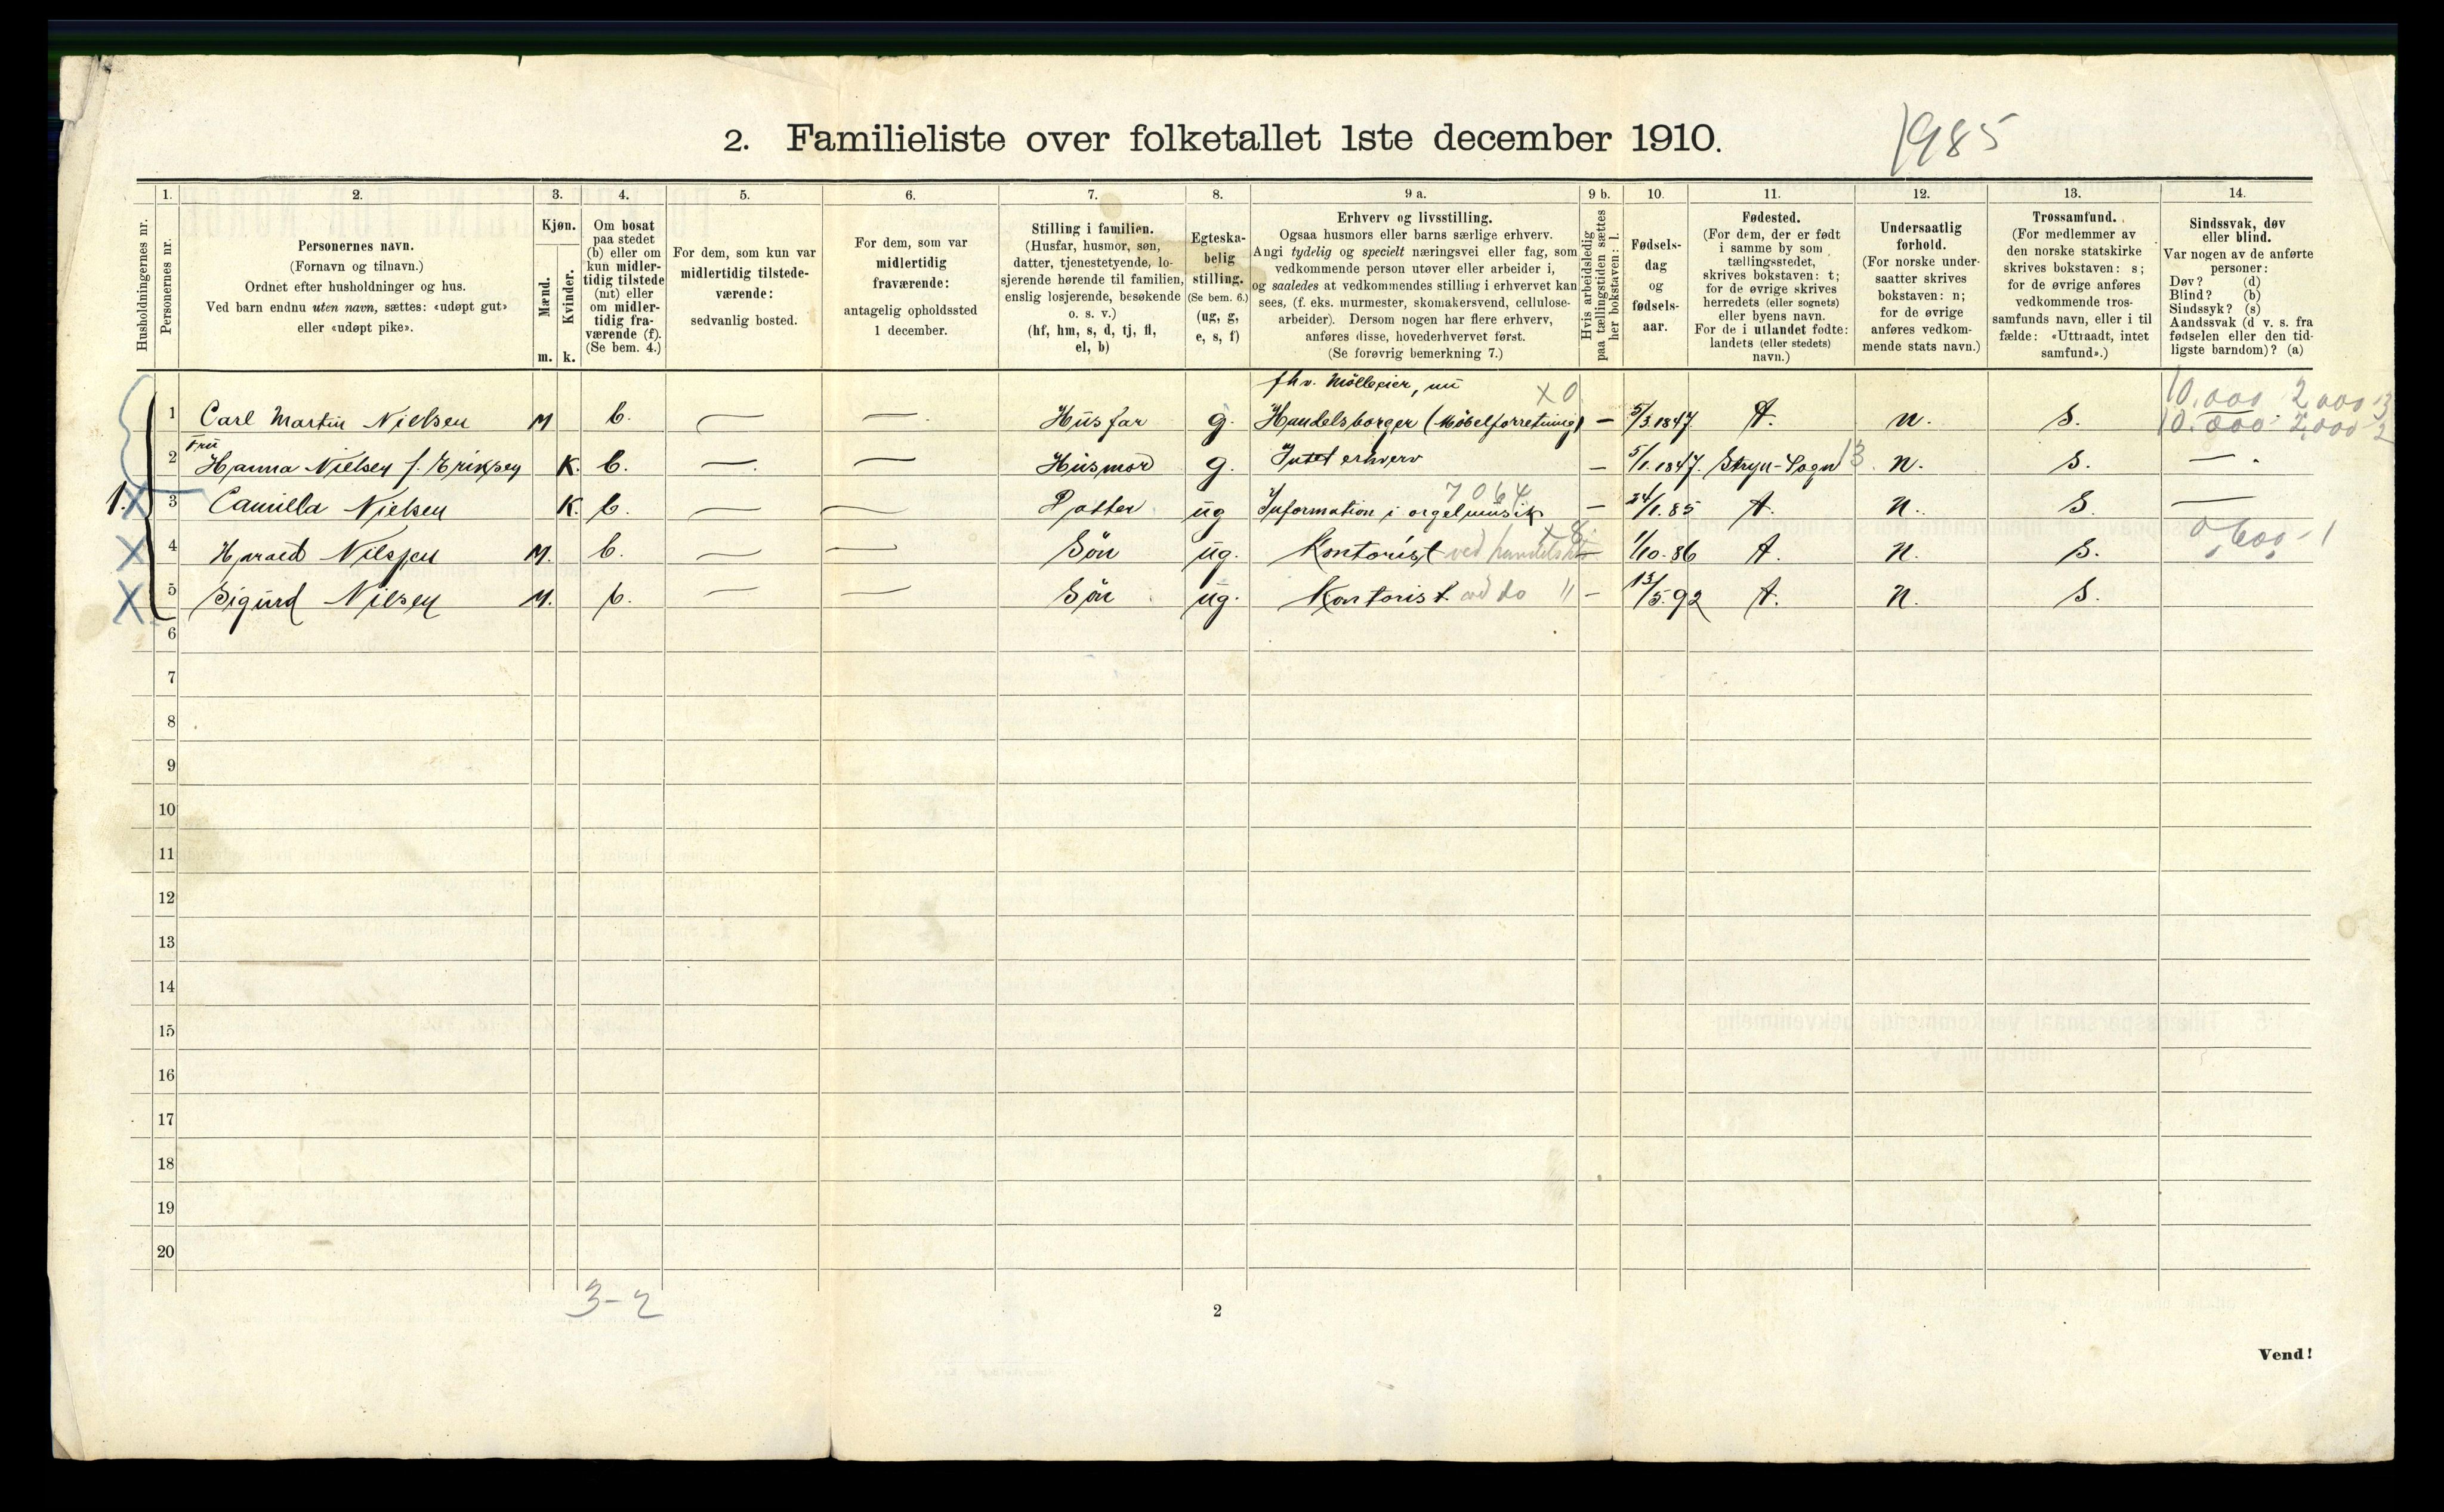 2. Familieliste over folketallet 1ste december 1910.
1985
1. 2. 3. 4. 5. 6. 7. 8. 9 a. 9 b. 10. 11. 12. 13. 14.
Husholdningernes nr.
Personernes nr.
Personernes navn.
(Fornavn og tilnavn.)
Ordnet efter husholdninger og hus.
Ved barn endnu uten navn, sættes: «udøpt gut»
eller «udøpt pike».
Kjøn.
Mænd.
Kvinder.
m. k.
Om bosat
paa stedet
(b) eller om
kun midler-
tidig tilstede
(mt) eller
om midler-
tidig fra-
værende (f).
(Se bem. 4.)
For dem, som kun var
midlertidig tilstede-
værende:
sedvanlig bosted.
For dem, som var
midlertidig
fraværende:
antagelig opholdssted
1 december.
Stilling i familien.
(Husfar, husmor, søn,
datter, tjenestetyende, lo-
sjerende hørende til familien,
enslig losjerende, besøkende
o. s. v.)
(hf, hm, s, d, tj, fl,
el, b)
Egteska-
belig
stilling.
(Se bem. 6.)
(ug, g,
e, s, f)
Erhverv og livsstilling.
Ogsaa husmors eller barns særlige erhverv.
Angi tydelig og specielt næringsvei eller fag, som
vedkommende person utøver eller arbeider i,
og saaledes at vedkommendes stilling i erhvervet kan
sees, (f. eks. murmester, skomakersvend, cellulose-
arbeider). Dersom nogen har flere erhverv,
anføres disse, hovederhvervet først.
(Se forøvrig bemerkning 7.)
Hvis arbeidsledig
paa tællingstiden sættes
her bokstaven: l.
Fødsels-
dag
og
fødsels-
aar.
Fødested.
(For dem, der er født
i samme by som
tællingsstedet,
skrives bokstaven: t;
for de øvrige skrives
herredets (eller sognets)
eller byens navn.
For de i utlandet fødte:
landets (eller stedets)
navn.)
Undersaatlig
forhold.
(For norske under-
saatter skrives
bokstaven: n;
for de øvrige
anføres vedkom-
mende stats navn.)
Trossamfund.
(For medlemmer av
den norske statskirke
skrives bokstaven: s;
for de øvrige anføres
vedkommende tros-
samfunds navn, eller i til
fælde: «Uttraadt, intet
samfund».)
Sindssvak, døv
eller blind.
Var nogen av de anførte
personer:
Døv? (d)
Blind? (b)
Sindssyk? (s)
Aandssvak (d v. s. fra
fødselen eller den tid-
ligste barndom)? (a)
fhv. Mölleeier, nu X0 10.000 2000 3
1 Carl Martin Nielsen M b. — — Husfar g. Handelsborger (Möbelforretning) — 5/3 1847 t. n. s. 10.000 - 2,000 2
Fru
2 Hanna Nielsen f. Eriksen K. b. — — Husmor g. Intet erhverv — 5/1.1847. Stryn-Sogn 13 n. s. —
7064
1. X 3 Camilla Nielsen K. b. — — Datter ug Information i orgelmusik — 24/1.85 t. n. s. —
X 4 Harald Nielsen M. b. — — Sön ug. Kontorist ved handels — 1/10-86 t. n. s. 0 600 - 1
X 5 Sigurd Nielsen M. b. — — Sön ug. Kontorist ved do " — 13/5.92 t. n. s.
6
7
8
9
10
11
12
13
14
15
16
17
18
19
20
3-2
2
Vend!